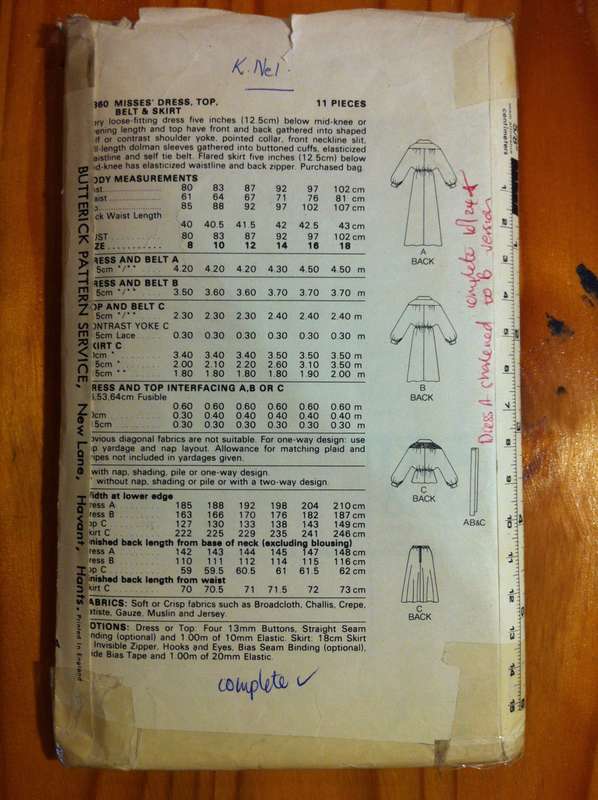 K. Nel.
360 MISSES' DRESS, TOP, 11 PIECES
BELT & SKIRT
ery loose-fitting dress five inches (12.5cm) below mid-knee or
ening length and top have front and back gathered into shaped
lf or contrast shoulder yoke, pointed collar, front neckline slit,
ll-length dolman sleeves gathered into buttoned cuffs, elasticized
aistline and self tie belt. Flared skirt five inches (12.5 cm) below
id-knee has elasticized waistline and back zipper. Purchased bag.
ODY MEASUREMENTS
st 80 83 87 92 97 102 cm
aist 61 64 67 71 76 81 cm
85 88 92 97 102 107 cm
ck Waist Length
40 40.5 41.5 42 42.5 43 cm
UST 80 83 87 92 97 102 cm
ZE 8 10 12 14 16 18
RESS AND BELT A
5cm */** 4.20 4.20 4.20 4.30 4.50 4.50 m
RESS AND BELT B
5cm */** 3.50 3.60 3.60 3.70 3.70 3.70 m
OP AND BELT C
5cm */** 2.30 2.30 2.30 2.40 2.40 2.40 m
ONTRAST YOKE C
5cm Lace 0.30 0.30 0.30 0.30 0.30 0.30 m
KIRT C
0cm * 3.40 3.40 3.40 3.50 3.50 3.50 m
5cm * 2.00 2.10 2.20 2.60 3.10 3.50 m
5cm ** 1.80 1.80 1.80 1.80 1.90 2.00 m
RESS AND TOP INTERFACING A,B OR C
,53,64cm Fusible
0.60 0.60 0.60 0.60 0.60 0.60 m
0cm 0.30 0.40 0.40 0.40 0.40 0.40 m
5cm 0.30 0.30 0.30 0.30 0.30 0.30 m
bvious diagonal fabrics are not suitable. For one-way design: use
p yardage and nap layout. Allowance for matching plaid and
ripes not included in yardages given.
with nap, shading, pile or one-way design.
without nap, shading or pile or with a two-way design.
idth at lower edge
ress A 185 188 192 198 204 210 cm
ress B 163 166 170 176 182 187 cm
op C 127 130 133 138 143 149 cm
kirt C 222 225 229 235 241 246 cm
inished back length from base of neck (excluding blousing)
ress A 142 143 144 145 147 148 cm
ress B 110 111 112 114 115 116 cm
op C 59 59.5 60.5 61 61.5 62 cm
inished back length from waist
kirt C 70 70.5 71 71.5 72 73 cm
ABRICS: Soft or Crisp fabrics such as Broadcloth, Challis, Crepe,
atiste, Gauze, Muslin and Jersey.
OTIONS: Dress or Top: Four 13mm Buttons, Straight Seam
inding (optional) and 1.00m of 10mm Elastic. Skirt: 18cm Skirt
Invisible Zipper, Hooks and Eyes, Bias Seam Binding (optional),
ide Bias Tape and 1.00m of 20mm Elastic.
complete ✓
BUTTERICK PATTERN SERVICE, New Lane, Havant, Hants. Printed In England
A
BACK
B
BACK
C
BACK
AB&C
C
BACK
Dress A shortened to B version
centimeters
1
2
3
4
5
6
7
8
9
10
11
12
13
14
15